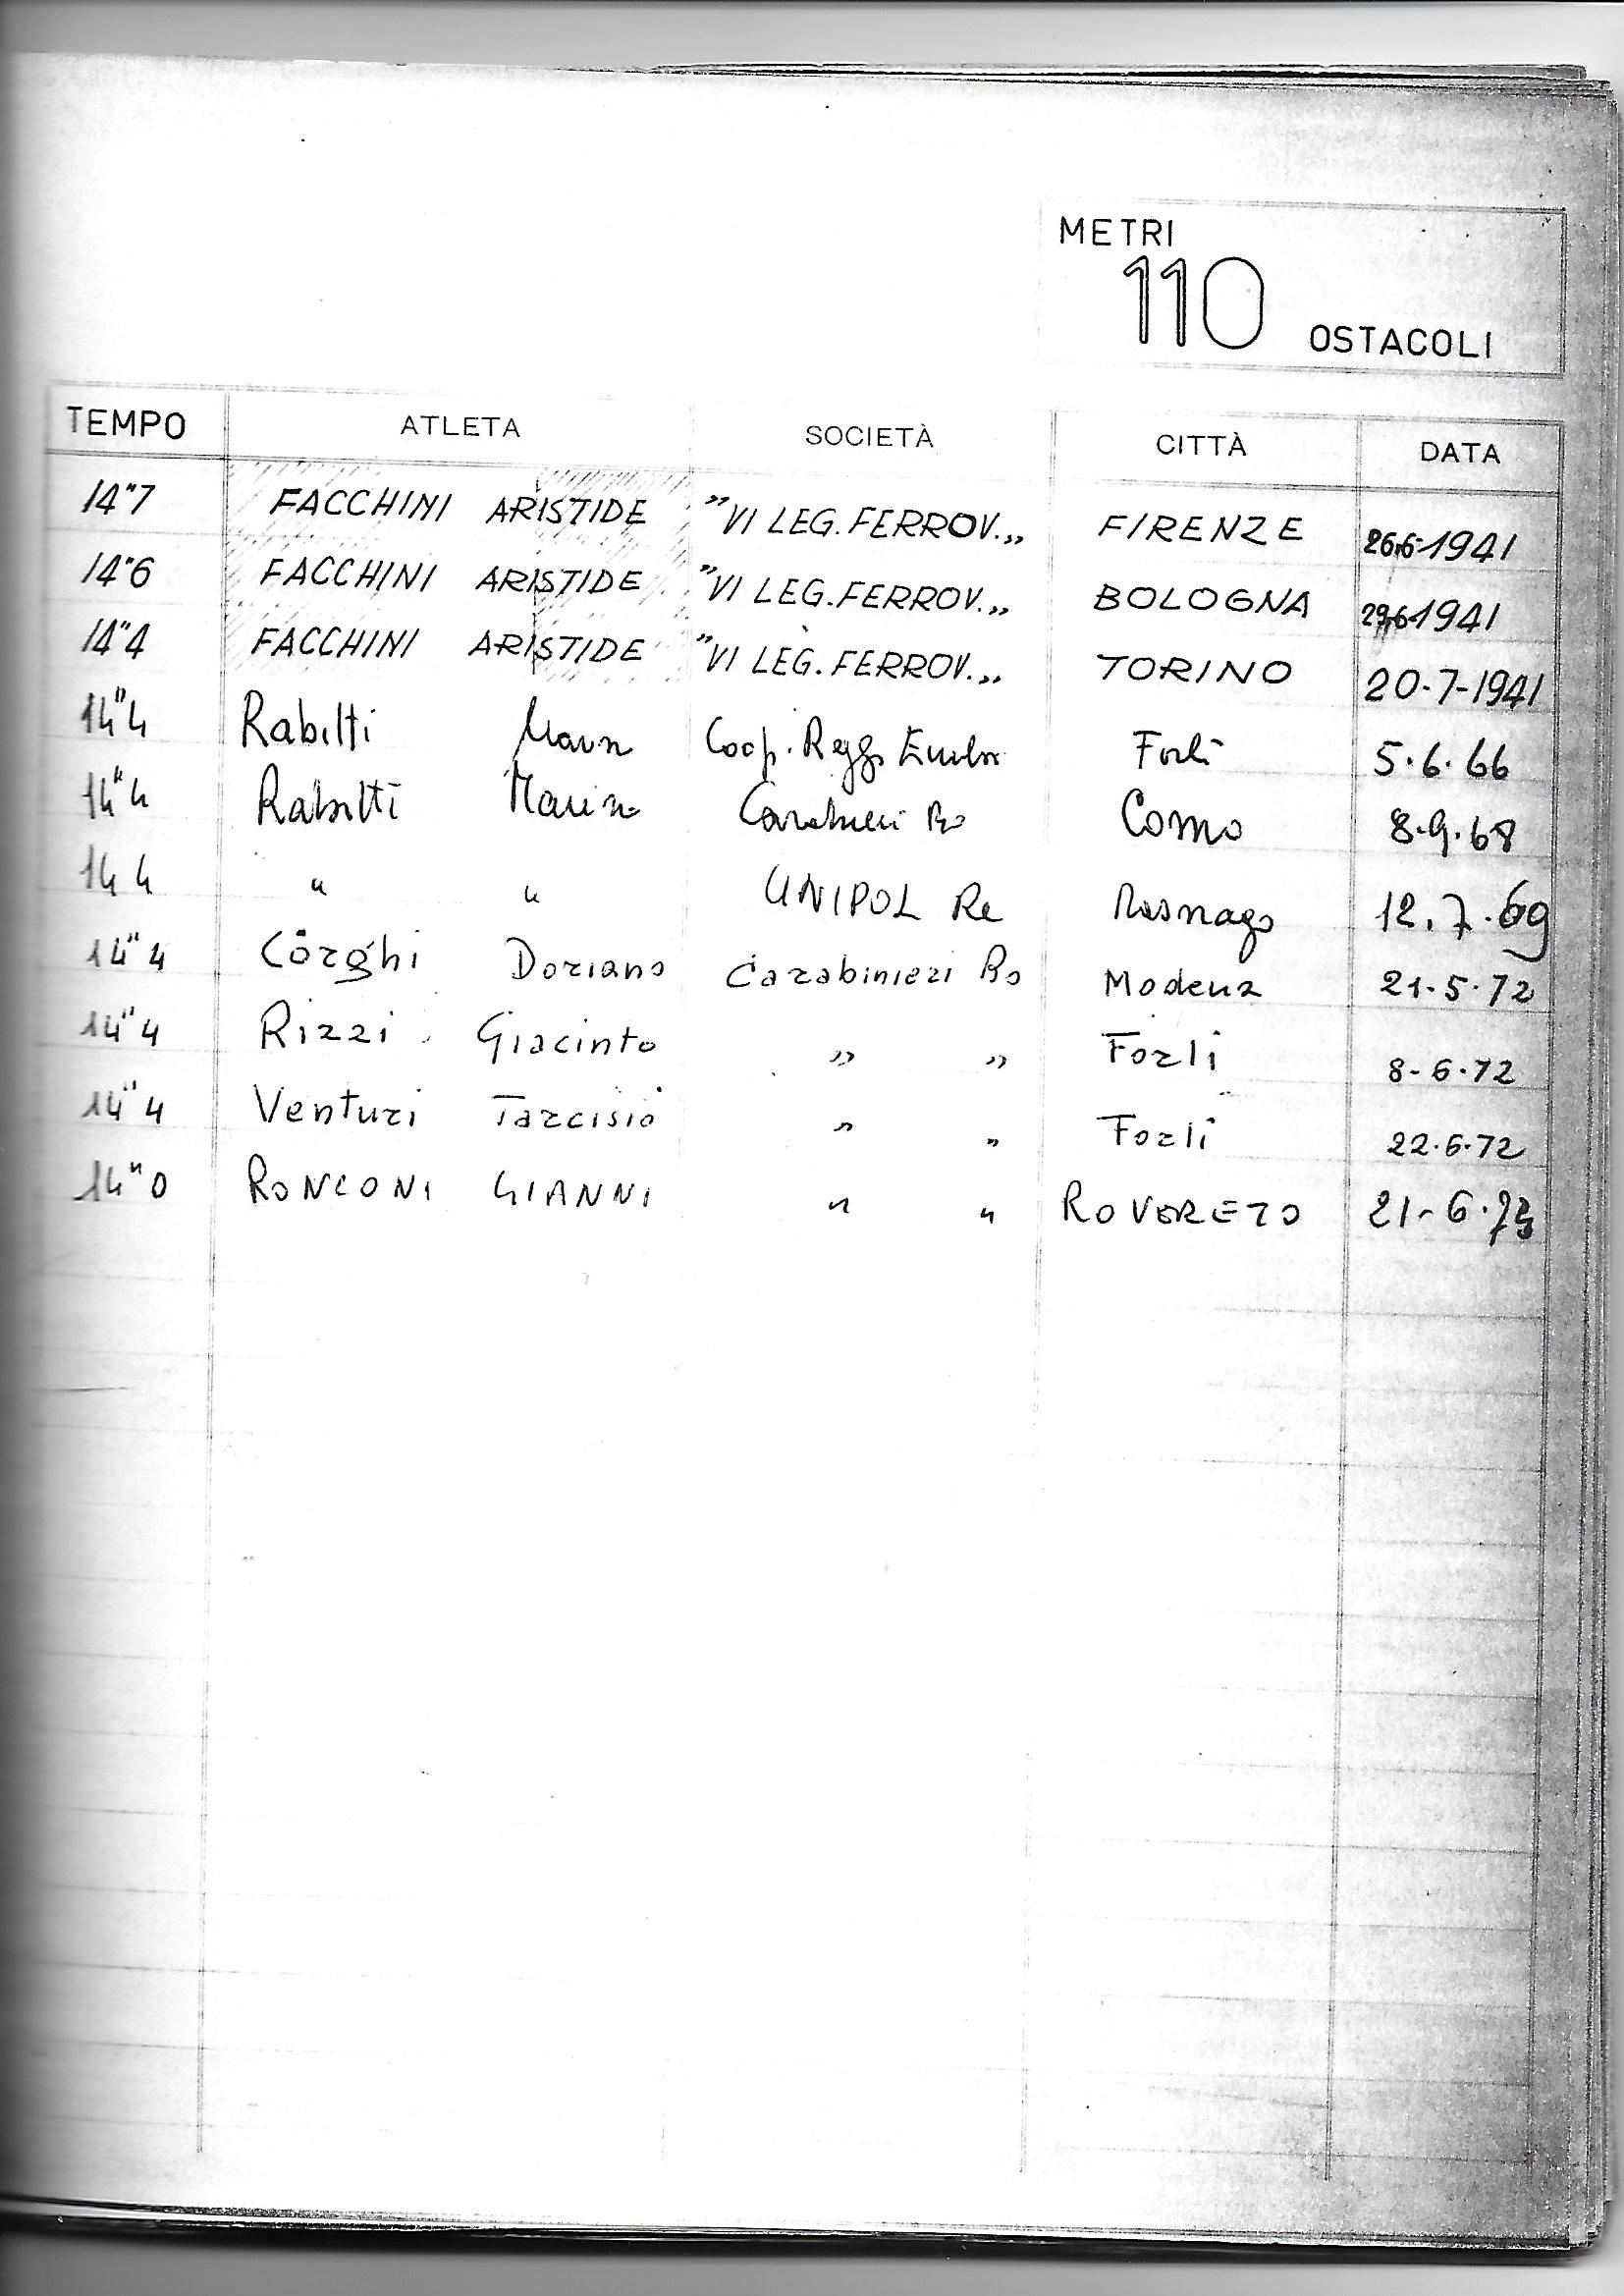 METRI
110 OSTACOLI
TEMPO ATLETA SOCIETÀ CITTÀ DATA
14"7 FACCHINI ARISTIDE "VI LEG. FERROV.„ FIRENZE 26.6.1941
14"6 FACCHINI ARISTIDE "VI LEG. FERROV.„ BOLOGNA 29.6.1941
14"4 FACCHINI ARISTIDE "VI LEG. FERROV.„ TORINO 20-7-1941
14"4 Rabitti Coop. Regg. Forlì 5.6.66
14"4 Rabitti Carabinieri Bo Como 8.9.68
14 4 " " UNIPOL Re 12.7.69
14"4 Corghi Doriano Carabinieri Bo Modena 21.5.72
14"4 Rizzi Giacinto " " Forlì 8-6.72
14"4 Venturi Tarcisio " " Forlì 22.6.72
14"0 RONCONI GIANNI " " ROVERETO 21-6.73